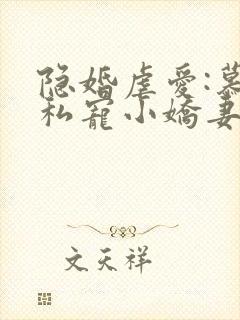 隐婚虐爱:慕
私宠小娇妻
文天祥